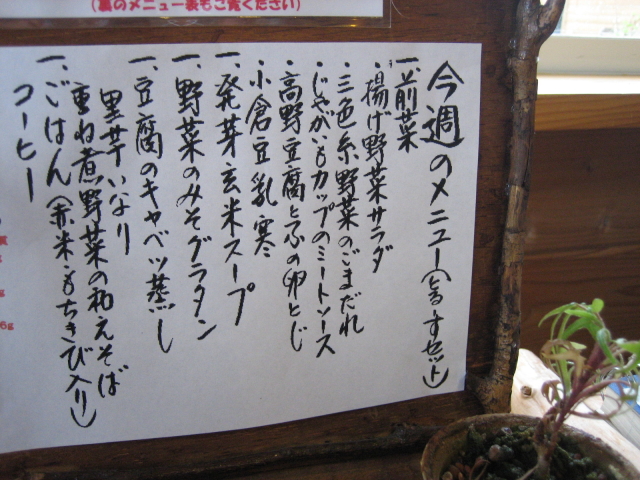 (裏のメニュー表もご覧ください)
今週のメニュー(とるすセット)
一、前菜
・揚げ野菜サラダ
・三色糸野菜のごまだれ
・じゃがいもカップのミートソース
・高野豆腐とふの卵とじ
・小倉豆乳寒
一、発芽玄米スープ
一、野菜のみそグラタン
一、豆腐のキャベツ蒸し
里芋いなり
重ね煮野菜の和えそば
一、ごはん(赤米・もちきび入り)
コーヒー
6g